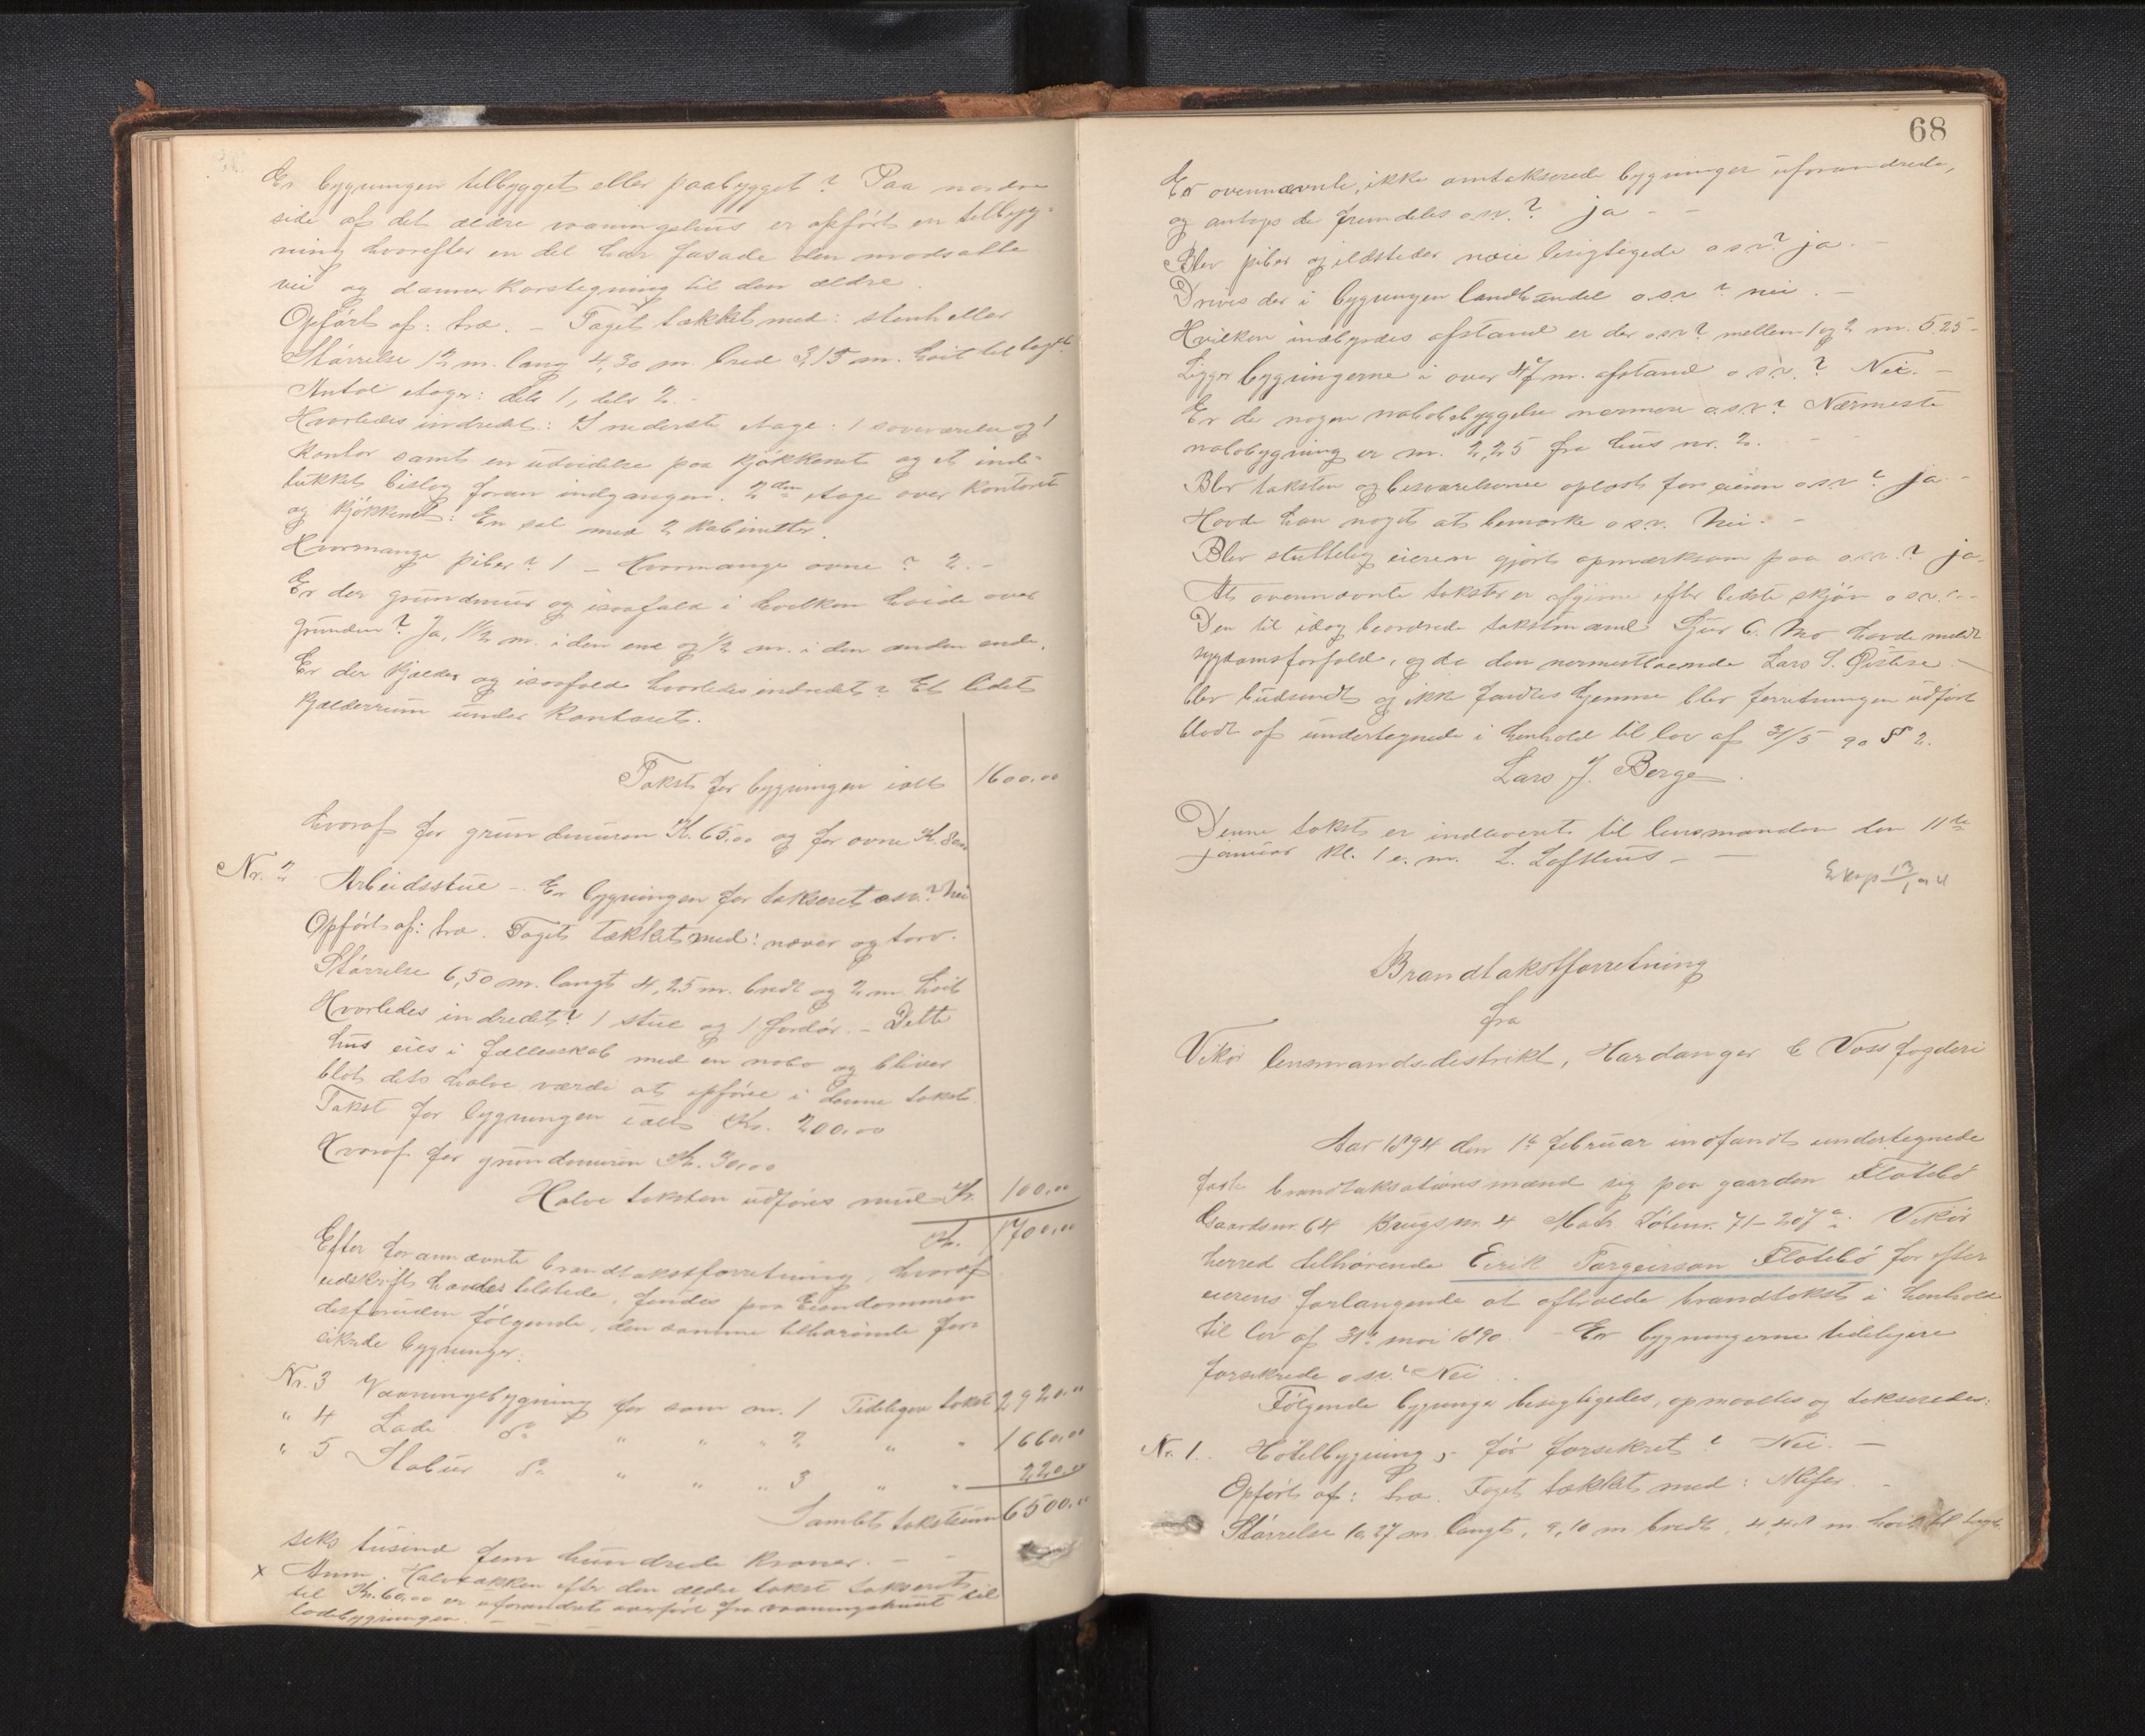 Er bygningen tilbygget eller paabygget? Paa nordre
side af det ældre vaaningshus er opført en tilbyg-
ning hvorefter en del har fasade den modsatte
vei og danner korsbygning til den ældre.
Opført af: træ. – Taget tækket med: stenheller
Størrelse 12 m. lang 4,30 m. bred 3,15 m. høit til taget.
Antal etager: dels 1, dels 2. –
Hvorledes indredet: I nederste etage: 1 soveværelse og 1
kontor samt en udvidelse paa kjøkkenet og et ind-
lukket bislag foran indgangen. 2den etage over kontoret
og kjøkkenet: En sal med 2 kabinetter.
Hvormange piber? 1 – Hvormange ovne? 2. –
Er der grundmur og isaafald i hvilken høide over
grunden? Ja, 1½ m. i den ene og ½ m. i den anden ende.
Er der kjælder og isaafald hvorledes indredet? Et lidet
kjælderrum under kontoret.
Takst for bygningen ialt 1600,00
hvoraf for grundmuren Kr. 65,00 og for ovne Kr. 80,00
Nr. 2 Arbeidsstue – Er bygningen før takseret o.s.v.? Nei
Opført af: træ. Taget tækket med: næver og torv.
Størrelse 6,50 m. langt 4,25 m. bredt og 2 m. høit
Hvorledes indredet? 1 stue og 1 fordør. – Dette
hus eies i fællesskab med en nabo og bliver
blot dets halve værdi at opføre i denne takst.
Takst for bygningen ialt Kr. 200,00
Hvoraf for grundmuren Kr. 30,00
Halve taksten udføres med Kr. 100,00
Kr. 1700,00
Efter forannævnte brandtakstforretning, hvoraf
udskrift havdes tilstede, fandes paa Eiendommen
desforuden følgende, den samme tilhørende for-
sikrede bygninger.
Nr. 3 Vaaningsbygning før som nr. 1 Tidligere takst 2920,00
" 4 Lade do " " " 2 " " 1660,00
" 5 Stabur do " " " 3 " " 220,00
Samlet takstsum 6500,00
seks tusind fem hundrede kroner. – –
x Anm. Halvtækken efter den ældre takst takseret
til Kr. 60,00 er uforandret overført fra vaaningshuset til
ladebygningen. – – –
68
Er ovennævnte, ikke omtakserede bygninger uforandrede,
og antages de fremdeles o.s.v.? ja – –
Blev piber og ildsteder nøie besigtigede o.s.v? ja. –
Drives der i bygningen landhandel o.s.v? nei. –
Hvilken indbyrdes afstand er der o.s.v? mellem 1 og 2 m. 5,25 –
Ligger bygningerne i over 47 m. afstand o.s.v.? Nei. –
Er de nogen nabobebyggelse nærmere o.s.v? Nærmeste
nabobygning er m. 2,25 fra hus nr. 2. – –
Blev taksten og besvarelserne oplæst for eieren o.s.v? ja –
Havde han noget at bemærke o.s.v. Nei. –
Blev sluttelig eieren gjort opmærksom paa o.s.v.? ja.
At ovennævnte takster er afgivne efter bedste skjøn o.s.v. –
Den til idag beordrede takstmand Sjur C. Mo havde meldt
sygdomsforfald, og da den nærmestboende Lars S. Øistese
blev budsendt og ikke fandtes hjemme blev forretningen udført
blodt af undertegnede i henhold til lov af 31/5 90 § 2.
Lars J. Berge.
Denne takst er indleveret til lensmanden den 11te
januar kl. 1 e.m. L. Lofthus – –
Eksp 13/1 94
Brandtakstforretning
fra
Vikør lensmandsdistrikt, Hardanger & Voss fogderi
Aar 1894 den 1te februar indfandt undertegnede
faste brandtaksationsmænd sig paa gaarden Flotebø
Gaardsnr. 64 Brugsnr. 4 Matr. Løbenr. 71–207a i Vikør
herred tilhørende Eirik Torgeirson Flotebø for efter
eierens forlangende at afholde brandtakst i henhold
til lov af 31te mai 1890. – Er bygningerne tidligere
forsikrede o.s.v.? Nei.
Følgende bygninger besigtigedes, opmaaltes og takseredes:
Nr. 1. Hotelbygning, – før forsikret? Nei. –
Opført af: træ. Taget tækket med: Skifer. –
Størrelse 10,27 m. langt, 9,10 m bredt, 4,48 m. høit til taget.